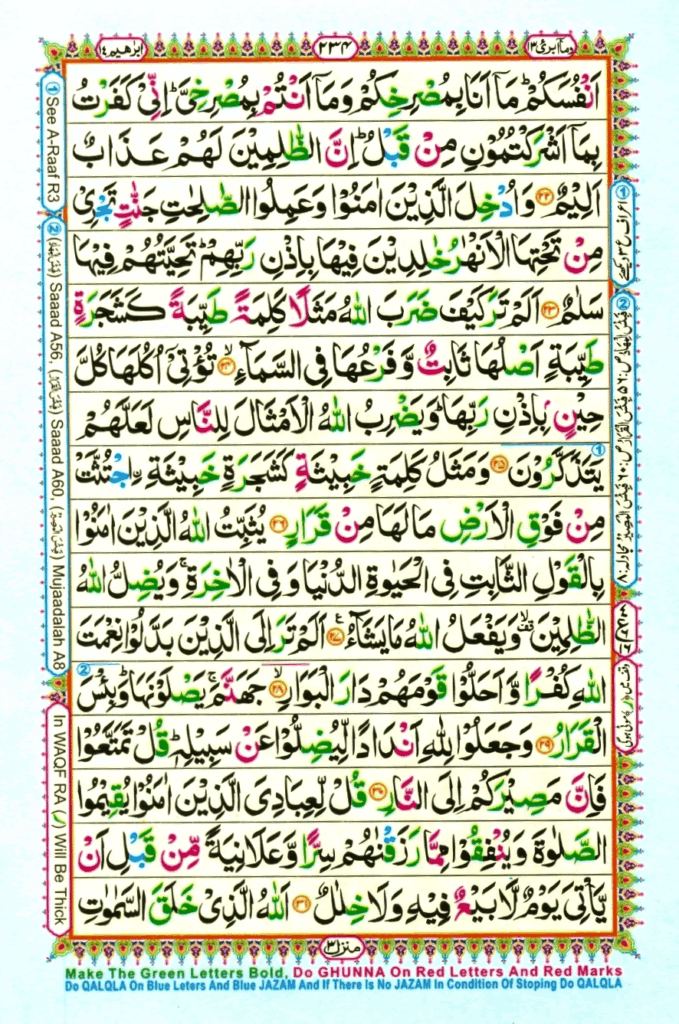 ابرٰهيم ١٤
٢٣٤
وما ابرئ ١٣
اَنْفُسَكُمْ ؕ مَاۤ اَنَا بِمُصْرِخِكُمْ وَمَاۤ اَنْتُمْ بِمُصْرِخِىَّ ؕ اِنِّىْ كَفَرْتُ
بِمَاۤ اَشْرَكْتُمُوْنِ مِنْ قَبْلُ ؕ اِنَّ الظّٰلِمِيْنَ لَهُمْ عَذَابٌ
اَلِيْمٌ ﴿٢٢﴾ وَاُدْخِلَ الَّذِيْنَ اٰمَنُوْا وَعَمِلُوا الصّٰلِحٰتِ جَنّٰتٍ تَجْرِىْ
مِنْ تَحْتِهَا الْاَنْهٰرُ خٰلِدِيْنَ فِيْهَا بِاِذْنِ رَبِّهِمْ ؕ تَحِيَّتُهُمْ فِيْهَا
سَلٰمٌ ﴿٢٣﴾ اَلَمْ تَرَ كَيْفَ ضَرَبَ اللّٰهُ مَثَلًا كَلِمَةً طَيِّبَةً كَشَجَرَةٍ
طَيِّبَةٍ اَصْلُهَا ثَابِتٌ وَّفَرْعُهَا فِى السَّمَآءِ ۙ﴿٢٤﴾ تُؤْتِىْۤ اُكُلَهَا كُلَّ
حِيْنٍۭ بِاِذْنِ رَبِّهَا ؕ وَيَضْرِبُ اللّٰهُ الْاَمْثَالَ لِلنَّاسِ لَعَلَّهُمْ
يَتَذَكَّرُوْنَ ﴿٢٥﴾ وَمَثَلُ كَلِمَةٍ خَبِيْثَةٍ كَشَجَرَةٍ خَبِيْثَةِ ۨاجْتُثَّتْ
مِنْ فَوْقِ الْاَرْضِ مَا لَهَا مِنْ قَرَارٍ ﴿٢٦﴾ يُثَبِّتُ اللّٰهُ الَّذِيْنَ اٰمَنُوْا
بِالْقَوْلِ الثَّابِتِ فِى الْحَيٰوةِ الدُّنْيَا وَفِى الْاٰخِرَةِ ۚ وَيُضِلُّ اللّٰهُ
الظّٰلِمِيْنَ ۙ وَيَفْعَلُ اللّٰهُ مَا يَشَآءُ ﴿٢٧﴾ اَلَمْ تَرَ اِلَى الَّذِيْنَ بَدَّلُوْا نِعْمَتَ
اللّٰهِ كُفْرًا وَّاَحَلُّوْا قَوْمَهُمْ دَارَ الْبَوَارِ ۙ﴿٢٨﴾ جَهَنَّمَ ۚ يَصْلَوْنَهَا ؕ وَبِئْسَ
الْقَرَارُ ﴿٢٩﴾ وَجَعَلُوْا لِلّٰهِ اَنْدَادًا لِّيُضِلُّوْا عَنْ سَبِيْلِهٖ ؕ قُلْ تَمَتَّعُوْا
فَاِنَّ مَصِيْرَكُمْ اِلَى النَّارِ ﴿٣٠﴾ قُلْ لِّعِبَادِىَ الَّذِيْنَ اٰمَنُوْا يُقِيْمُوا
الصَّلٰوةَ وَيُنْفِقُوْا مِمَّا رَزَقْنٰهُمْ سِرًّا وَّعَلَانِيَةً مِّنْ قَبْلِ اَنْ
يَّاْتِىَ يَوْمٌ لَّا بَيْعٌ فِيْهِ وَلَا خِلٰلٌ ﴿٣١﴾ اَللّٰهُ الَّذِىْ خَلَقَ السَّمٰوٰتِ
منزل ٣
① See A-Raaf R3
② (فَبِئْسَ الْمِهَادُ) Saaad A56, (فَبِئْسَ الْقَرَارُ) Saaad A60, (فَبِئْسَ الْمَصِيْرُ) Mujaadalah A8
In WAQF RA (ر) Will Be Thick
Make The Green Letters Bold, Do GHUNNA On Red Letters And Red Marks
Do QALQLA On Blue Leters And Blue JAZAM And If There Is No JAZAM In Condition Of Stoping Do QALQLA